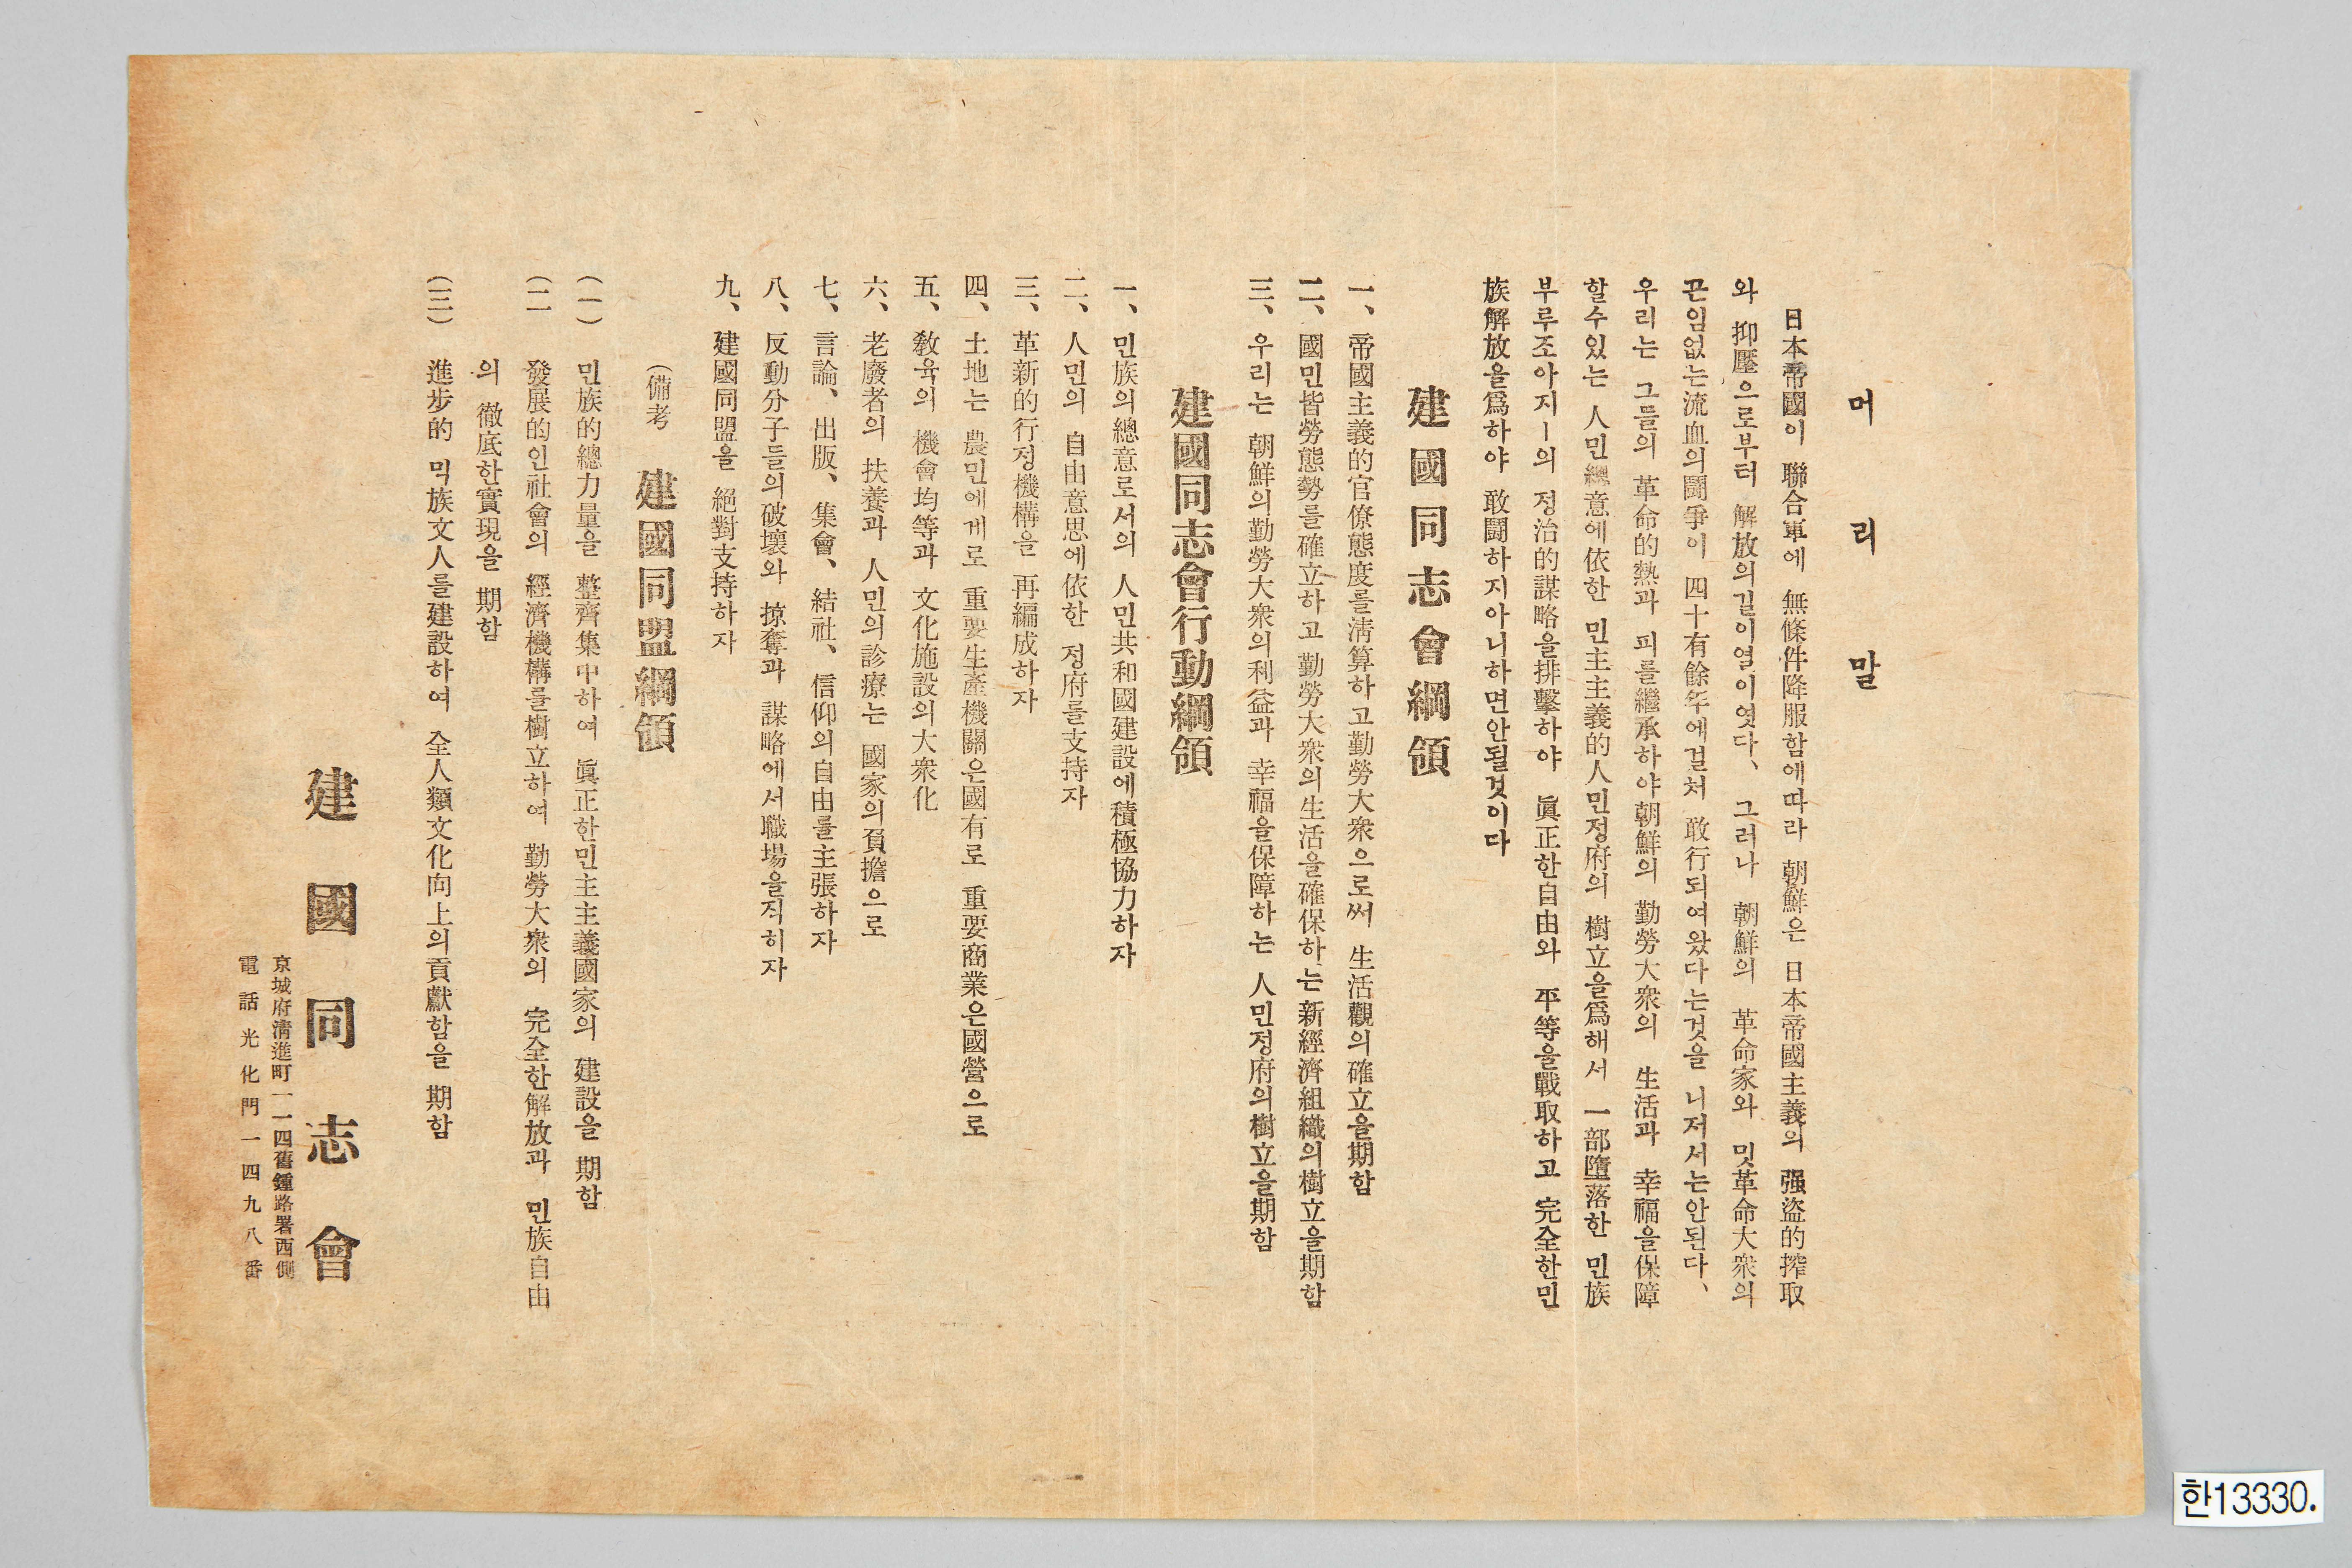 머리말
日本帝國이 聯合軍에 無條件降服함에따라 朝鮮은 日本帝國主義의 强盜的搾取
와 抑壓으로부터 解放의길이열이엿다、 그러나 朝鮮의 革命家와 밋革命大衆의
끈임없는流血의鬪爭이 四十有餘年에걸처 敢行되여왔다는것을 니저서는안된다、
우리는 그들의 革命的熱과 피를繼承하야朝鮮의 勤勞大衆의 生活과 幸福을保障
할수있는 人민總意에依한 민主主義的人민정府의 樹立을爲해서 一部墮落한 민族
부루조아지ー의 정治的謀略을排擊하야 眞正한自由와 平等을戰取하고 完全한민
族解放을爲하야 敢鬪하지아니하면안될것이다
建國同志會綱領
一、帝國主義的官僚態度를淸算하고勤勞大衆으로써 生活觀의確立을期함
二、國민皆勞態勢를確立하고勤勞大衆의生活을確保하는新經濟組織의樹立을期함
三、우리는 朝鮮의勤勞大衆의利益과 幸福을保障하는 人민정府의樹立을期함
建國同志會行動綱領
一、민族의總意로서의 人민共和國建設에積極協力하자
二、人민의 自由意思에依한 정府를支持자
三、革新的行정機構을 再編成하자
四、土地는 農민에게로 重要生產機關은國有로 重要商業은國營으로
五、敎육의 機會均等과 文化施設의大衆化
六、老廢者의 扶養과 人민의診療는 國家의負擔으로
七、言論、出版、集會、結社、信仰의自由를主張하자
八、反動分子들의破壞와 掠奪과 謀略에서職場을직히자
九、建國同盟을 絕對支持하자
(備考 建國同盟綱領
(一) 민族的總力量을 整齊集中하여 眞正한민主主義國家의 建設을 期함
(二 發展的인社會의 經濟機構를樹立하여 勤勞大衆의 完全한解放과 민族自由
의 徹底한實現을 期함
(三) 進步的 믹族文人를建設하여 全人類文化向上의貢獻함을 期함
建國同志會
京城府淸進町一一四舊鍾路署西側
電話光化門一四九八番
한13330.